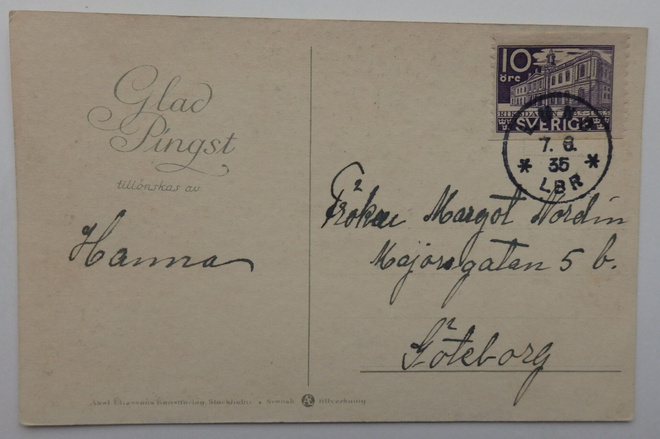 Glad
Pingst
tillönskas av
Hanna
10
öre
RIKSDAGEN 1435-1935
SVERIGE
7. 6.
35
LBR
Fröken Margot Nordin
Majorsgatan 5 b.
Göteborg
Axel Eliassons Konstförlag Stockholm • Svensk AE tillverkning